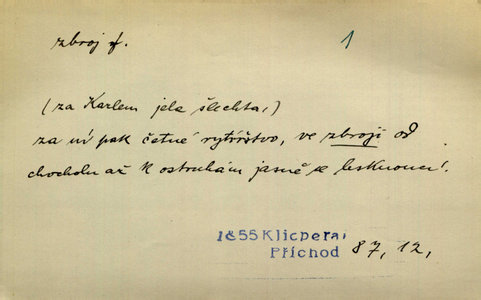 zbroj f.
1
(za Karlem jela šlechta,)
za ní pak četné rytířstvo, ve zbroji od
chocholu až k ostruhám jasně se lesknoucí.
1855 Klicpera,
Příchod 87, 12,